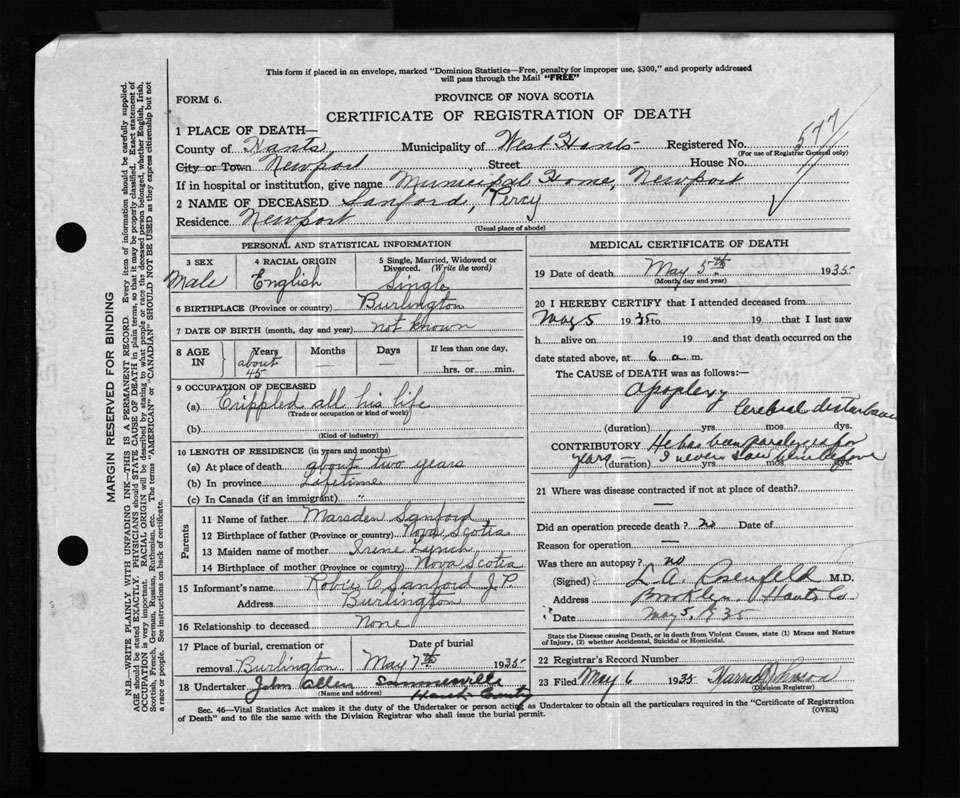 This form if placed in an envelope, marked "Dominion Statistics—Free, penalty for improper use, $300," and properly addressed
will pass through the Mail "FREE"
FORM 6.
PROVINCE OF NOVA SCOTIA
CERTIFICATE OF REGISTRATION OF DEATH
1 PLACE OF DEATH—
County of Hants, Municipality of West Hants Registered No. 577
(For use of Registrar General only)
City or Town Newport Street House No.
If in hospital or institution, give name Municipal Home, Newport
2 NAME OF DECEASED Sanford, Percy
Residence Newport
(Usual place of abode)
PERSONAL AND STATISTICAL INFORMATION
3 SEX Male
4 RACIAL ORIGIN English
5 Single, Married, Widowed or
Divorced. (Write the word)
single
6 BIRTHPLACE (Province or country) Burlington
7 DATE OF BIRTH (month, day and year) not known
8 AGE IN
Years Months Days If less than one day,
about 45 — — hrs. or min.
9 OCCUPATION OF DECEASED
(a) Crippled all his life
(Trade or occupation or kind of work)
(b)
(Kind of industry)
10 LENGTH OF RESIDENCE (in years and months)
(a) At place of death about two years
(b) In province Lifetime
(c) In Canada (if an immigrant) "
Parents
11 Name of father Marsden Sanford
12 Birthplace of father (Province or country) Nova Scotia
13 Maiden name of mother Irene Lynch
14 Birthplace of mother (Province or country) Nova Scotia
15 Informant's name Robie C Sanford J.P.
Address Burlington
16 Relationship to deceased None
17 Place of burial, cremation or Date of burial
removal Burlington May 7th 1935
18 Undertaker John Allen Summerville
(Name and address) Hants County
MEDICAL CERTIFICATE OF DEATH
19 Date of death May 5th 1935
(Month, day and year)
20 I HEREBY CERTIFY that I attended deceased from
May 5 1935 to 19 that I last saw
h alive on 19 and that death occurred on the
date stated above, at 6 a. m.
The CAUSE of DEATH was as follows:—
Apoplexy
Cerebral disturbance
(duration) yrs. mos. dys.
CONTRIBUTORY He has been paralyzed for
years — (duration) I never saw him before
yrs. mos. dys.
21 Where was disease contracted if not at place of death?
—
Did an operation precede death? no Date of
Reason for operation —
Was there an autopsy? no
(Signed) L. A. Rosenfeld M.D.
Address Brooklyn, Hants Co
Date May 5, 1935
State the Disease causing Death, or in death from Violent Causes, state (1) Means and Nature
of Injury, (2) whether Accidental, Suicidal or Homicidal.
22 Registrar's Record Number
23 Filed May 6 1935
(Division Registrar)
Sec. 46—Vital Statistics Act makes it the duty of the Undertaker or person acting as Undertaker to obtain all the particulars required in the "Certificate of Registration
of Death" and to file the same with the Division Registrar who shall issue the burial permit.
(OVER)
MARGIN RESERVED FOR BINDING
N.B.—WRITE PLAINLY WITH UNFADING INK—THIS IS A PERMANENT RECORD. Every item of information should be carefully supplied.
AGE should be stated EXACTLY. PHYSICIANS should STATE CAUSE OF DEATH in plain terms, so that it may be properly classified. Exact statement of
OCCUPATION is very important. RACIAL ORIGIN will be described by stating to what people or race the deceased person belonged, whether English, Irish,
Scottish, French, German, Russian, Ruthenian, etc. The terms "AMERICAN" or "CANADIAN" SHOULD NOT BE USED as they express citizenship but not
a race or people. See instructions on back of certificate.